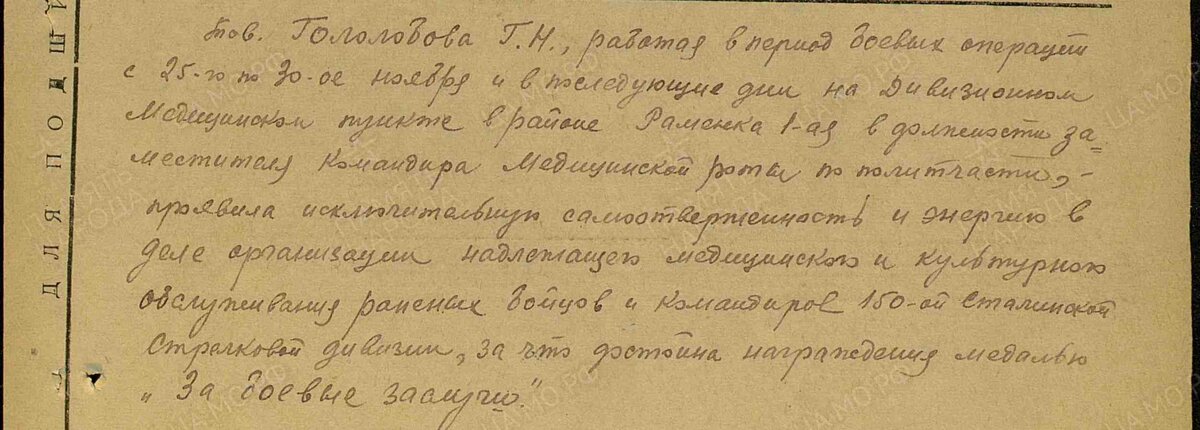 Тов. Гололобова Г.Н., работая в период боевых операций
с 25-го по 30-ое ноября и в последующие дни на Дивизионном
Медицинском пункте в районе Раменка 1-ая в должности за-
местителя командира Медицинской роты по политчасти, -
проявила исключительную самоотверженность и энергию в
деле организации надлежащего медицинского и культурного
обслуживания раненых бойцов и командиров 150-ой Сталинской
Стрелковой дивизии, за что достойна награждения медалью
„За боевые заслуги".
ДЛЯ ПОДШИ